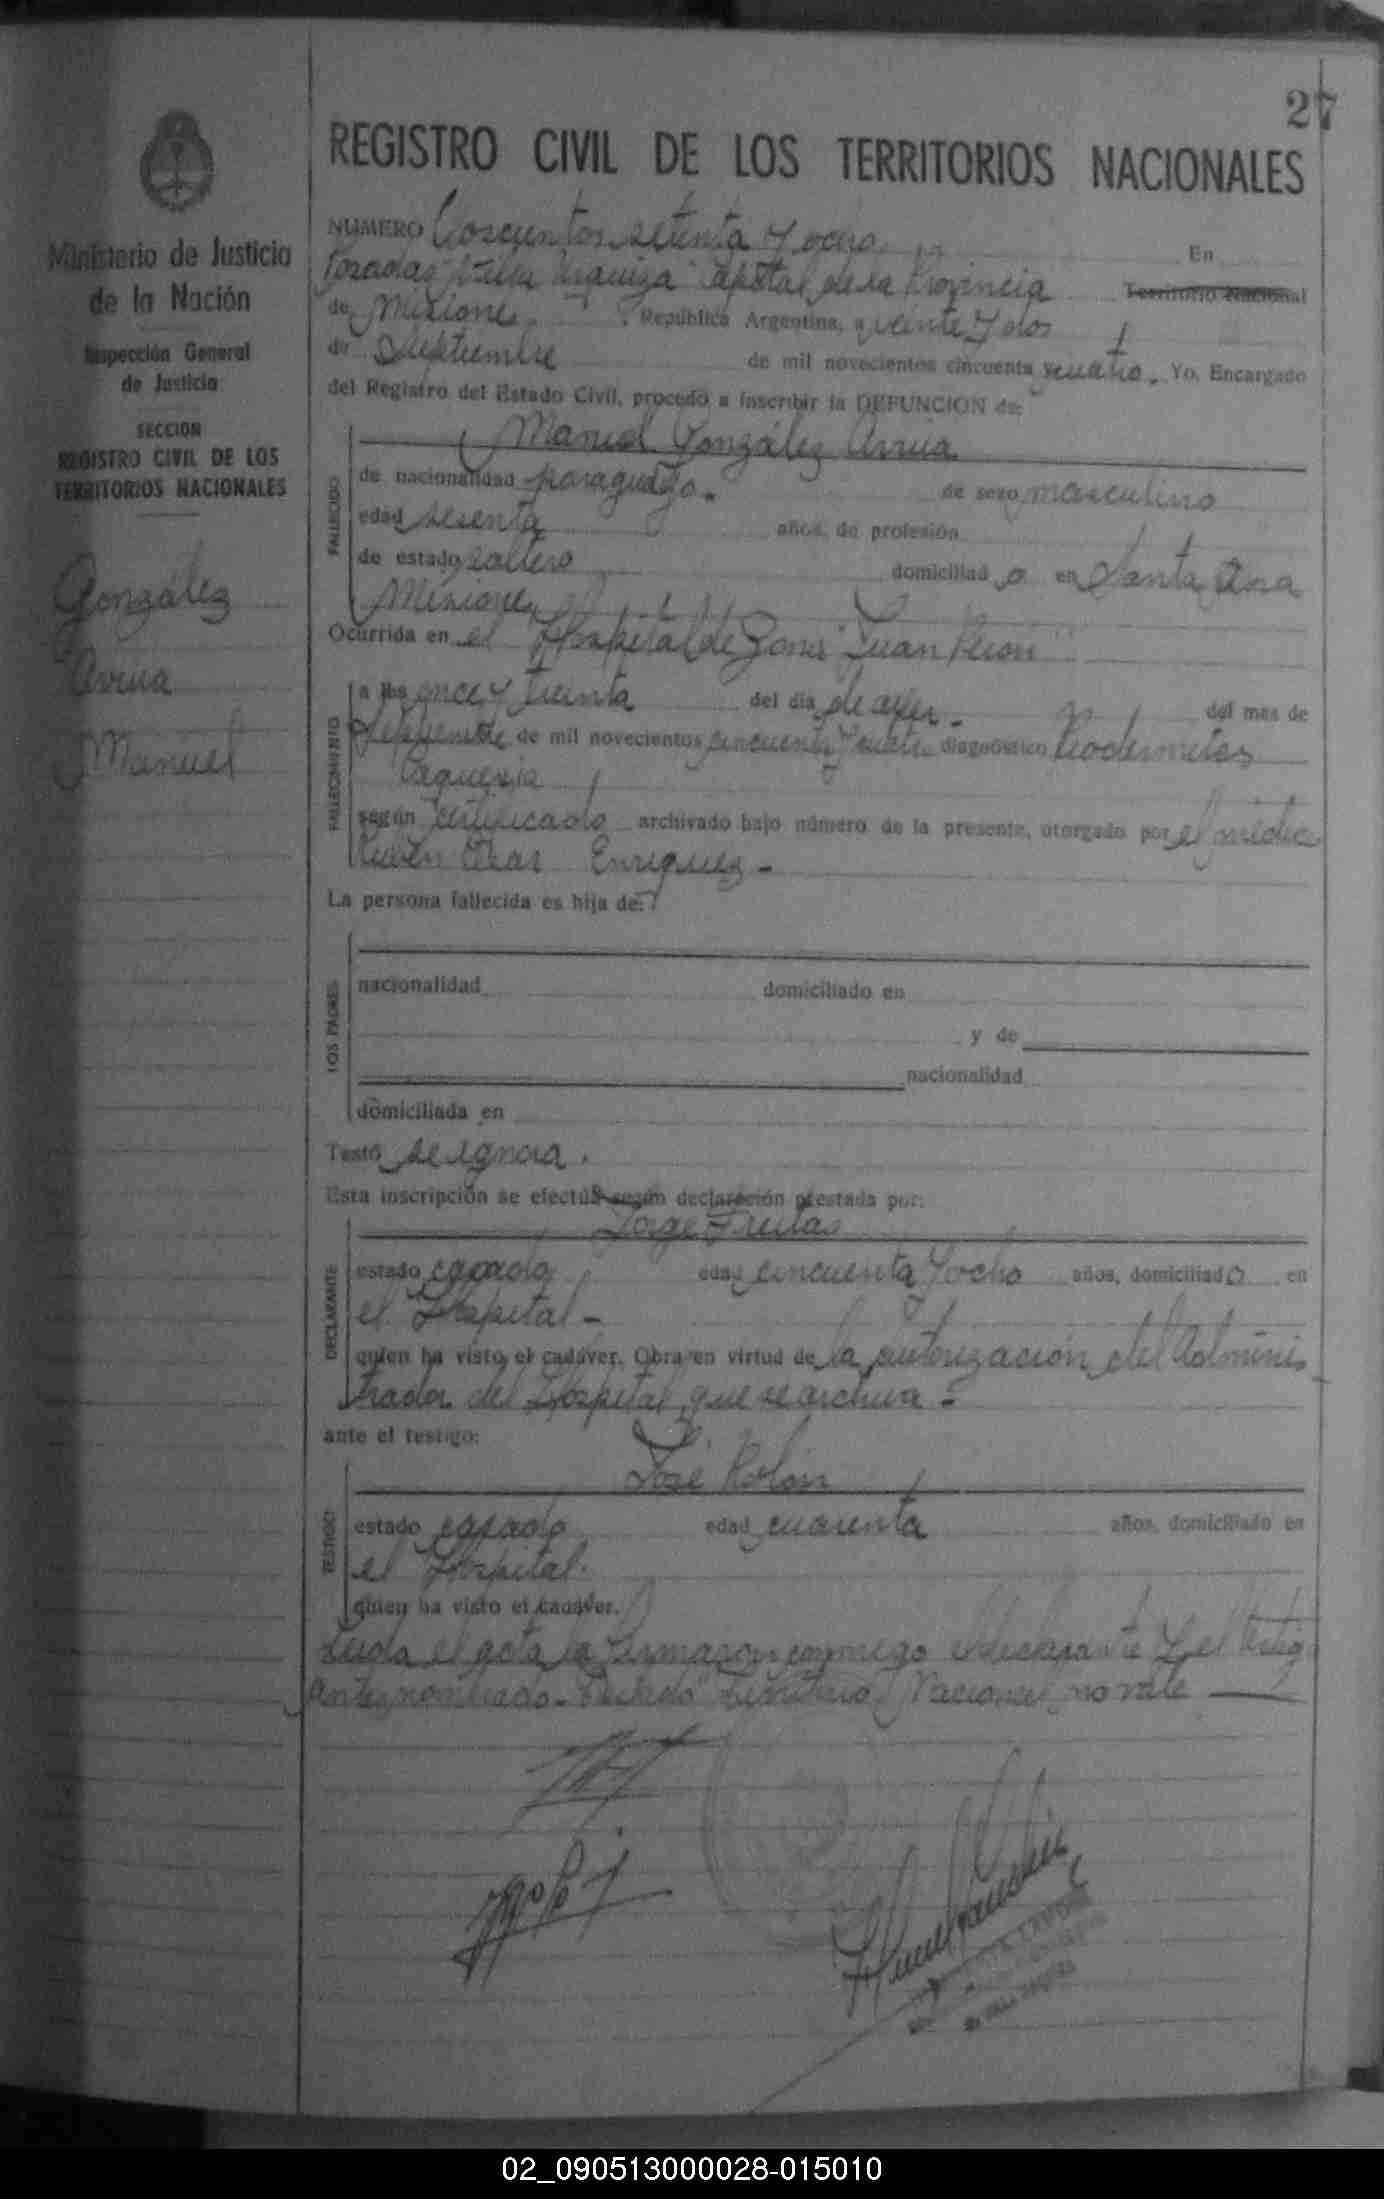 27
REGISTRO CIVIL DE LOS TERRITORIOS NACIONALES
Ministerio de Justicia
de la Nación
Inspección General
de Justicia
SECCION
REGISTRO CIVIL DE LOS
TERRITORIOS NACIONALES
González
Arrua
Manuel
NUMERO Doscientos setenta y ocho. En
Posadas "Villa Urquiza" Capital de la Provincia Territorio Nacional
de Misiones, República Argentina, a veinte y dos
de Septiembre de mil novecientos cincuenta y cuatro. Yo, Encargado
del Registro del Estado Civil, procedo a inscribir la DEFUNCION de:
FALLECIDO
Manuel González Arrua
de nacionalidad paraguayo. de sexo masculino
edad sesenta años, de profesión
de estado soltero domiciliado en Santa Ana
Misiones
Ocurrida en el Hospital de Zona "Juan Perón"
FALLECIMIENTO
a las once y treinta del día de ayer. del mes de
Septiembre de mil novecientos cincuenta y cuatro diagnóstico
Caquexia
según certificado archivado bajo número de la presente, otorgado por el médico
Rubén César Enriquez -
La persona fallecida es hija de:
LOS PADRES
nacionalidad domiciliado en
y de
nacionalidad
domiciliada en
Testó se ignora.
Esta inscripción se efectúa según declaración prestada por:
DECLARANTE
Jorge Freitas
estado casado edad cincuenta y ocho años, domiciliado en
el Hospital -
quien ha visto el cadáver. Obra en virtud de la autorización del Adminis
trador del Hospital que se archiva -
ante el testigo:
TESTIGO
José Rolón
estado casado edad cuarenta años, domiciliado en
el Hospital.
quien ha visto el cadáver.
Leida el acta la firmaron conmigo el declarante y el testigo
antes nombrado - Testado "Territorio Nacional" no vale
02_090513000028-015010